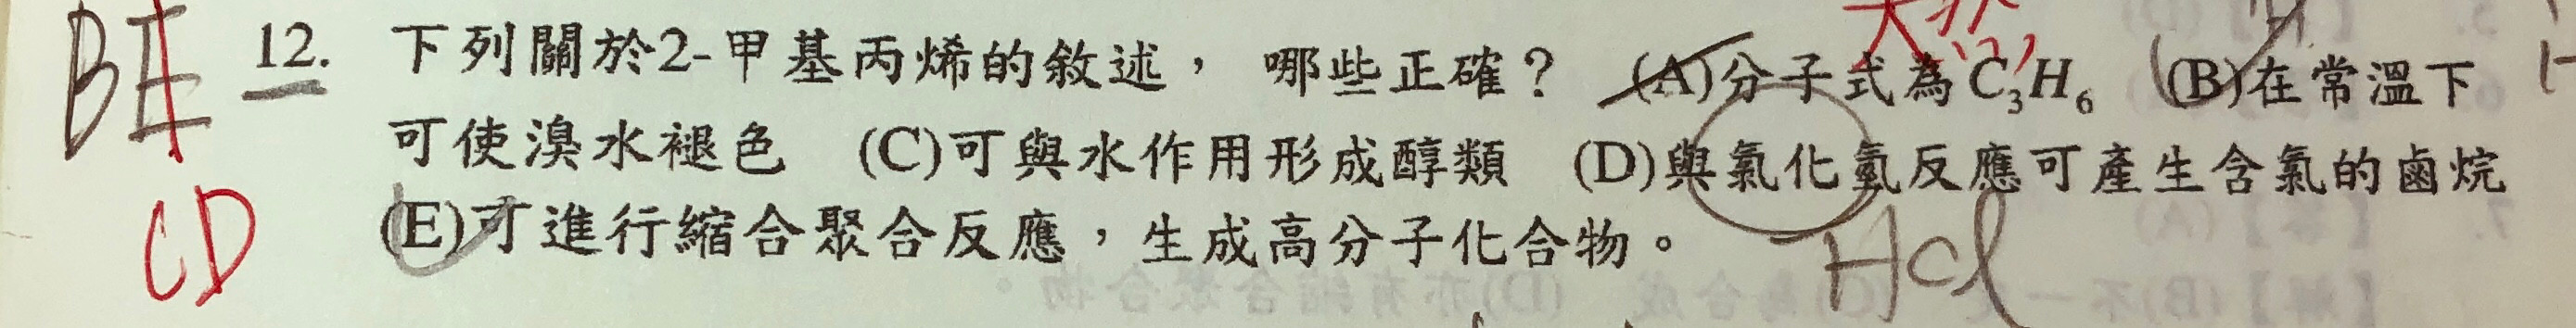 BE 12. 下列關於2-甲基丙烯的敘述，哪些正確？ (A)分子式為C₃H₆ (B)在常溫下
可使溴水褪色 (C)可與水作用形成醇類 (D)與氯化氫反應可產生含氯的鹵烷
CD (E)可進行縮合聚合反應，生成高分子化合物。
HCl